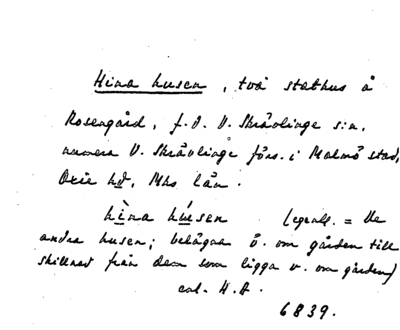 Hina husen, två stathus å
Rosengård, f.d. V. Skrävlinge sn.
numera V. Skrävlinge förs. i Malmö stad,
Oxie hd, Mhs län.
hina husen (egentl. = de
andra husen; belägna ö. om gården till
skillnad från dem som ligga v. om gården)
enl. H.A.
6839.